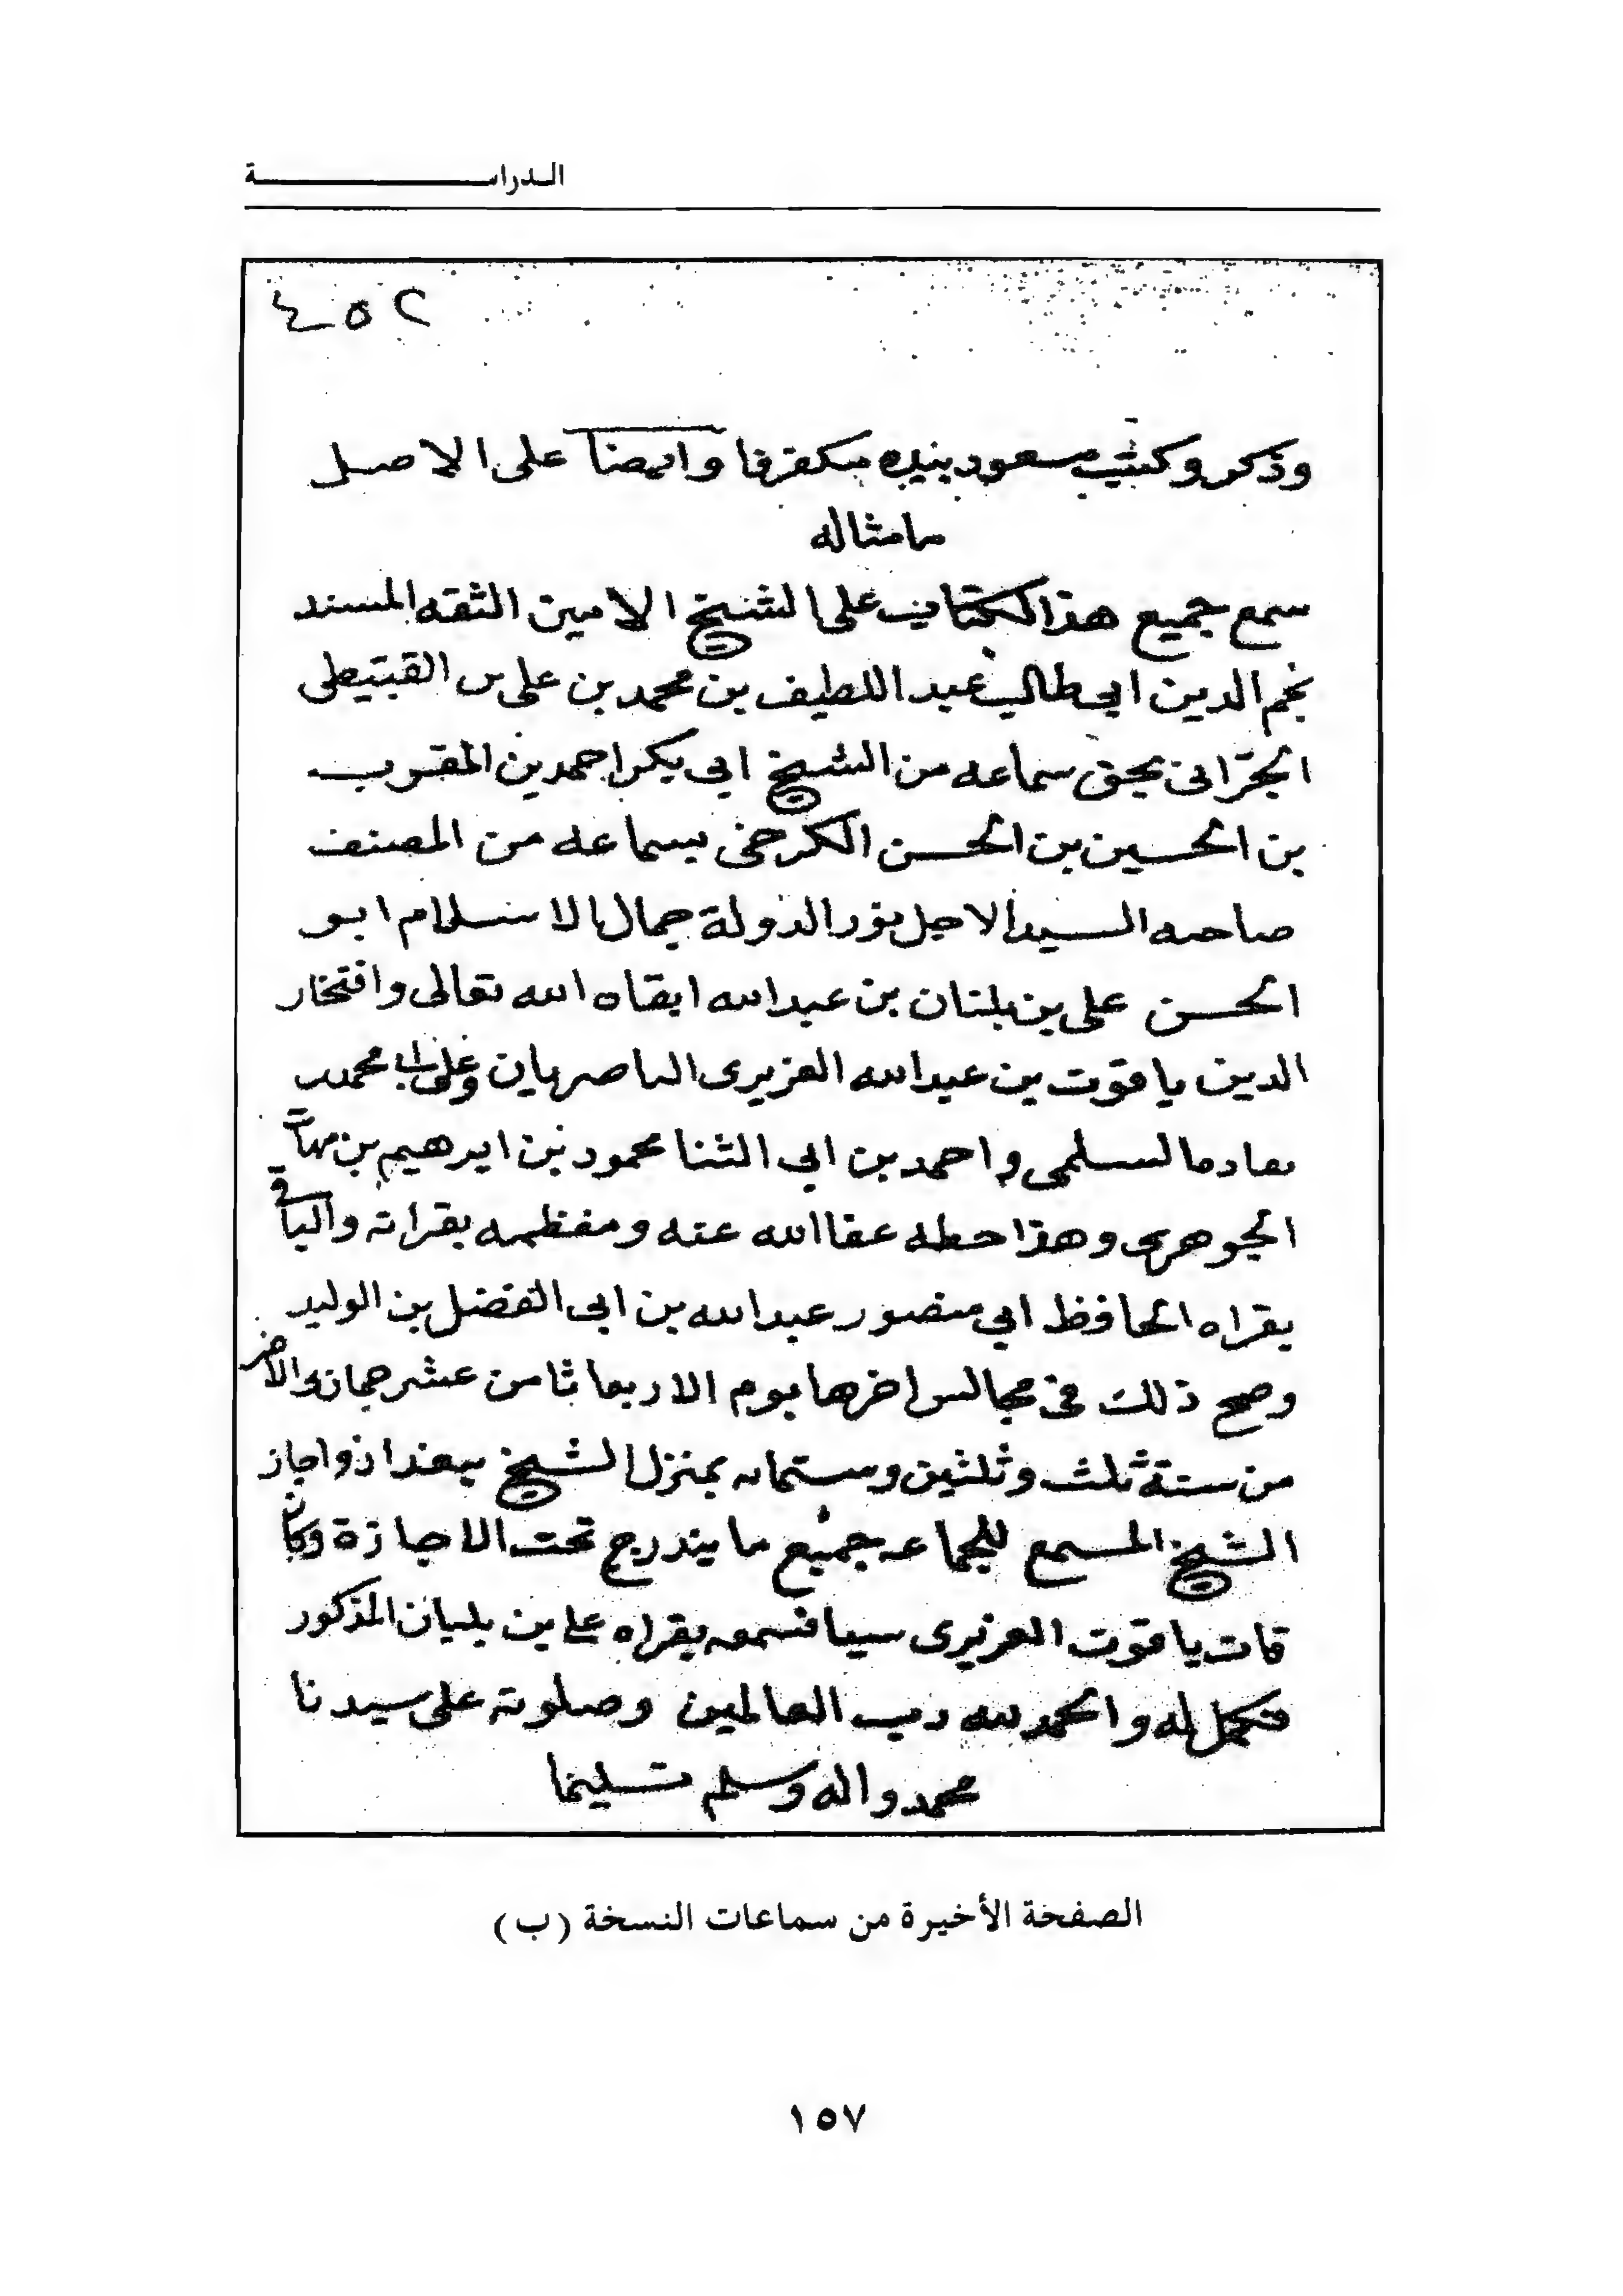 الدراسة
٤٥٢
وذكر وكتب مسعود بيده وايضا على الاصل
مامثاله
سمع جميع هذا الكتاب على الشيخ الامين الثقه المسند
نجم الدين ابي طالب عبد اللطيف بن محمد بن على بن القبيطى
الحرانى بحق سماعه من الشيخ ابي بكر احمد بن المقرب
بن الحسين بن الحسن الكرخى بسماعه من المصنف
صاحبه السيد الاجل نور الدولة جمال الاسلام ابو
الحسن على بن بلبان بن عبد الله ابقاه الله تعالى وافتخار
الدين ياقوت بن عبد الله العزيزى الناصريان وعلى بن محمد بن
السلمى واحمد بن ابي الثنا محمود بن ابرهيم بن
الجوهرى وهذا خطه عفا الله عنه بقراته والباقى
بقراه الحافظ ابي منصور عبد الله بن ابى الفضل بن الوليد
وصح ذلك فى مجالس اخرها يوم الاربعا ثامن عشر جمادى الاخر
من سنة ثلث وثلثين وستمائه بمنزل الشيخ ببغداذ واجاز
الشيخ المسمع للجماعه جميع ما يندرج تحت الاجازة وكان
فات ياقوت العزيزى سيا فسمعه بقراه على بن بلبان المذكور
فكمل له والحمد لله رب العالمين وصلوته على سيدنا
محمد واله وسلم تسليما
الصفحة الأخيرة من سماعات النسخة (ب)
١٥٧